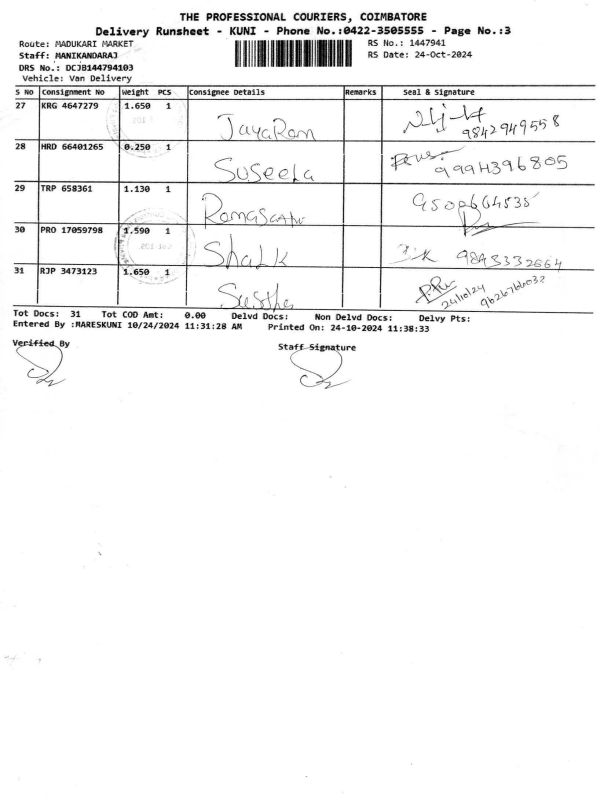 THE PROFESSIONAL COURIERS, COIMBATORE
Delivery Runsheet - KUNI - Phone No.:0422-3505555 - Page No.:3
Route: MADUKARI MARKET RS No.: 1447941
Staff: MANIKANDARAJ RS Date: 24-Oct-2024
DRS No.: DCJB144794103
Vehicle: Van Delivery
S No Consignment No Weight PCS Consignee Details Remarks Seal & Signature
27 KRG 4647279 1.650 1 JayaRam 9842949558
28 HRD 66401265 0.250 1 SuSeeLa 9994396805
29 TRP 658361 1.130 1
30 PRO 17059798 1.590 1 ShaLK
31 RJP 3473123 1.650 1 24/10/24
Tot Docs: 31 Tot COD Amt: 0.00 Delvd Docs: Non Delvd Docs: Delvy Pts:
Entered By :MARESKUNI 10/24/2024 11:31:28 AM Printed On: 24-10-2024 11:38:33
Verified By Staff Signature